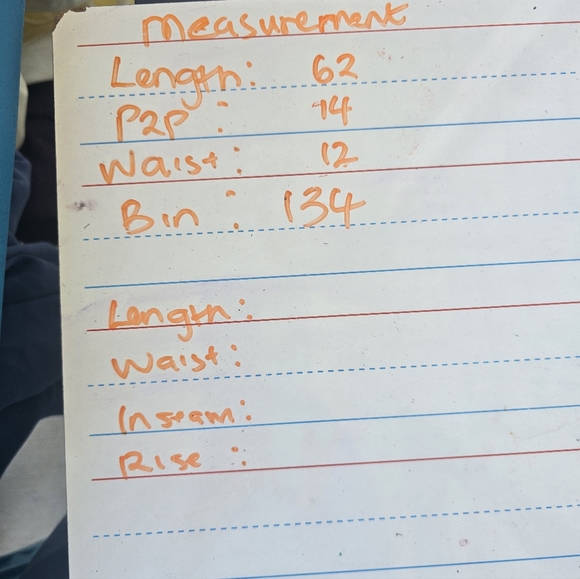 Measurement
Length: 62
P2P: 14
Waist: 12
Bin: 134
Length:
Waist:
Inseam:
Rise: